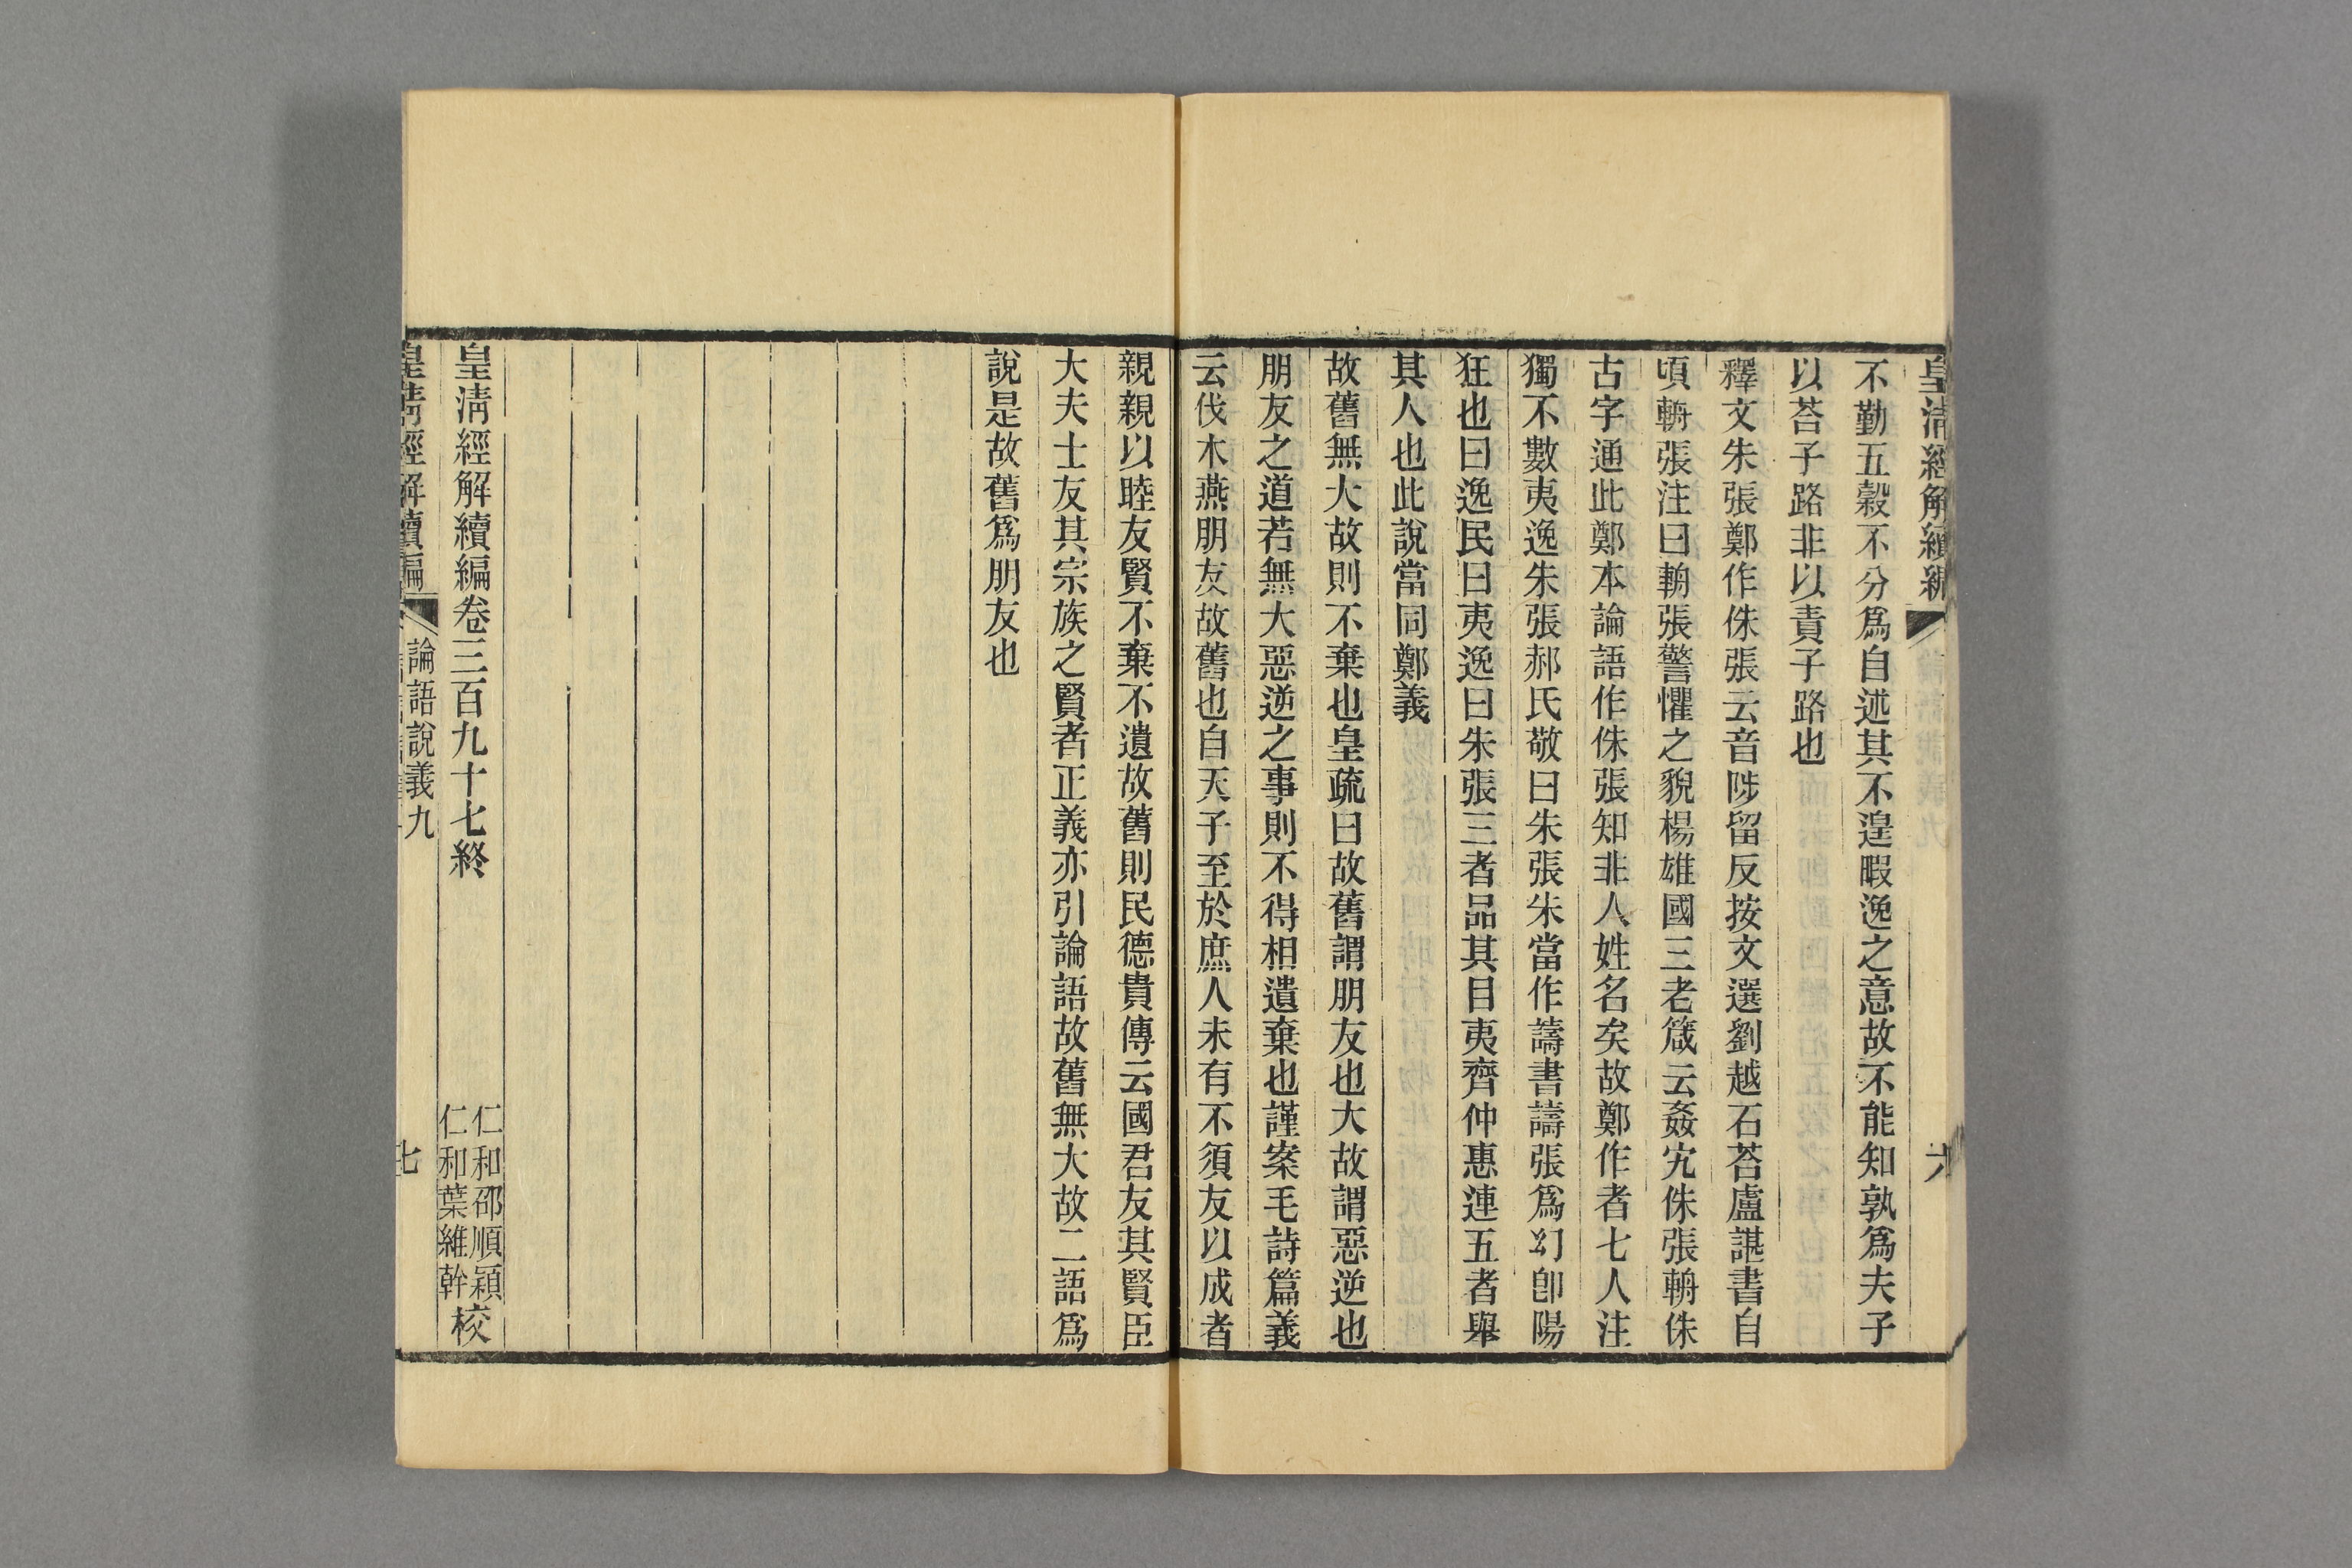 皇清經解續編
六
不勤五穀不分爲自述其不遑暇逸之意故不能知孰爲夫子
以荅子路非以責子路也
釋文朱張鄭作侏張云音陟留反按文選劉越石荅盧諶書自
頃輈張注曰輈張警懼之貌楊雄國三老箴云姦宄侏張輈侏
古字通此鄭本論語作侏張知非人姓名矣故鄭作者七人注
獨不數夷逸朱張郝氏敬曰朱張朱當作譸書譸張爲幻卽陽
狂也曰逸民曰夷逸曰朱張三者品其目夷齊仲惠連五者舉
其人也此說當同鄭義
故舊無大故則不棄也皇疏曰故舊謂朋友也大故謂惡逆也
朋友之道若無大惡逆之事則不得相遺棄也謹案毛詩篇義
云伐木燕朋友故舊也自天子至於庶人未有不須友以成者
親親以睦友賢不棄不遺故舊則民德貴傳云國君友其賢臣
大夫士友其宗族之賢者正義亦引論語故舊無大故二語爲
說是故舊爲朋友也
皇清經解續編卷三百九十七終
仁和邵順穎
仁和葉維幹
校
皇清經解續編
論語說義九
七